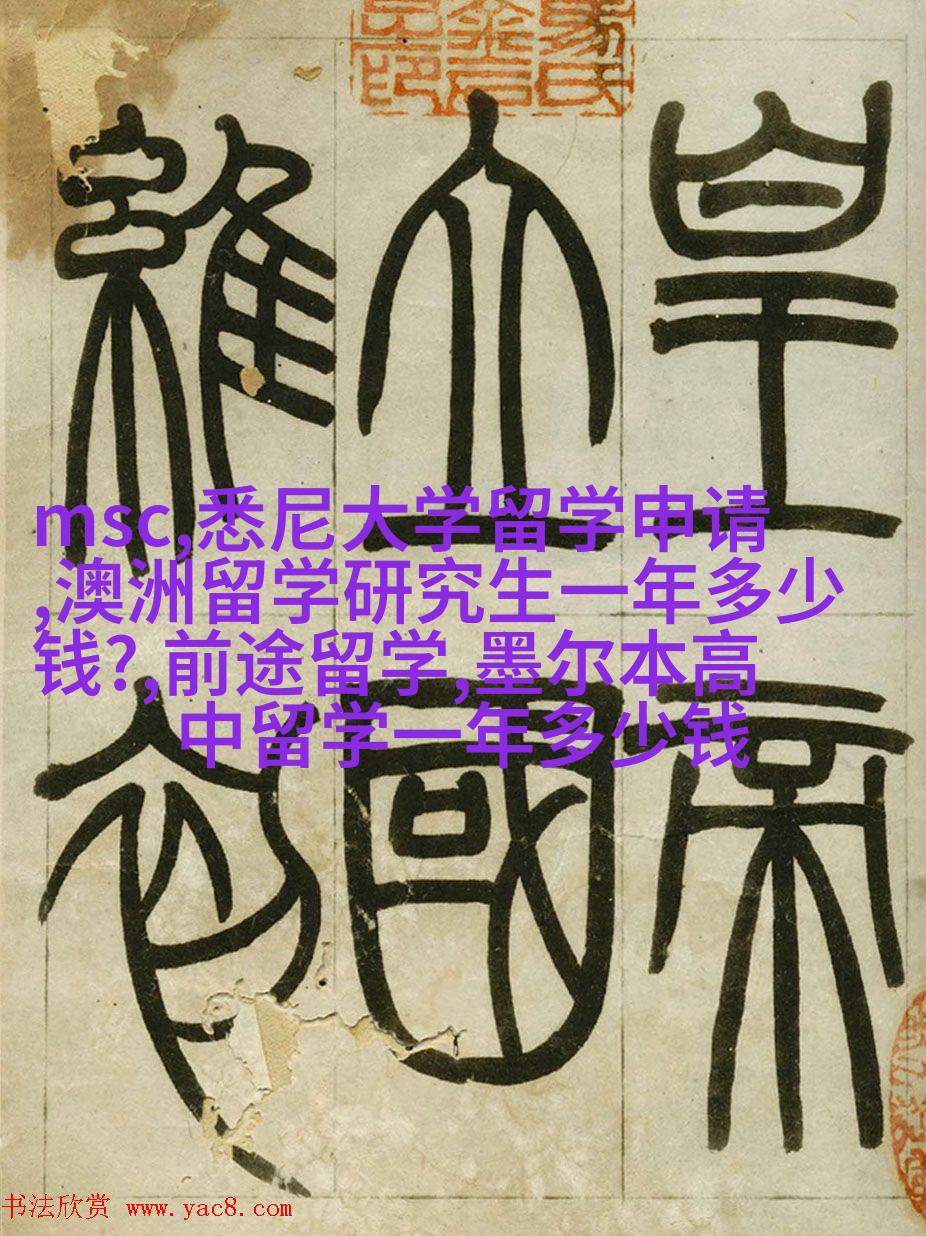 皇帝
立國
維初
msc,悉尼大学留学申请
,澳洲留学研究生一年多少
钱?,前途留学,墨尔本高
中留学一年多少钱
书法欣赏 www.yac8.com